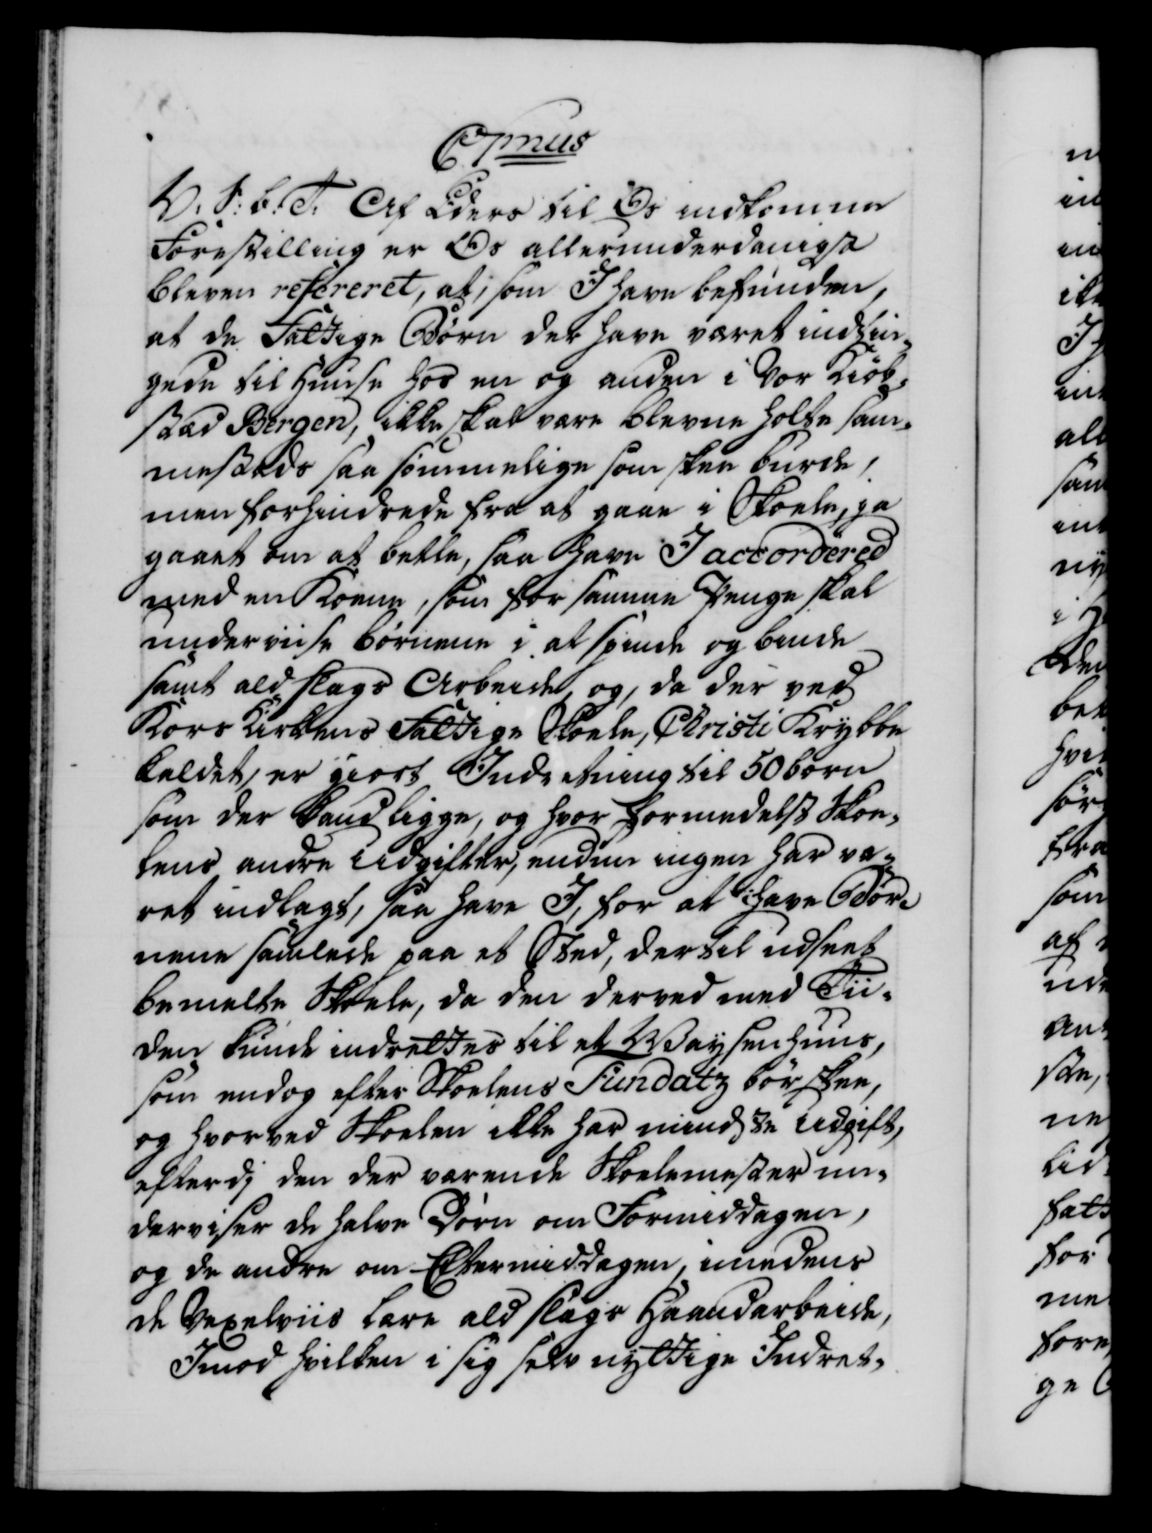 C7mus
V. S: b. T. Af Eders til Os indkomne
Forestilling er Os allerunderdanigst
bleven refereret, at, som I have befunden,
at de Fattige Børn der have været indtin-
gede til Huuse hos en og anden i Vor Kiøb-
stæd Bergen, ikke skal være blevne holte sam-
mesteds saa sømmelige som skee burde,
men forhindrede fra at gaae i Skoele, ja
gaaet om at betle, saa have I accordered
med en Koene, som for samme Penge skal
underviise børnene i at spinde og binde
samt ald slags Arbeide, og, da der ved
Kors Kirkens Fattige Skoele, Christi Krybbe
kaldet, er giort Indretning til 50 børn
som der kand ligge, og hvor formedelst Skoe-
lens andre Udgifter, endnu ingen har væ-
ret indlagt, saa have I, for at have Bør-
nene samlede paa et Sted, dertil udseet
bemelte Skoele, da den derved med Tii-
den kunde indrettes til et Waysenhuus,
som endog efter Skoelens Fundatz bør skee,
og hvorved Skoelen ikke har mindste Udgift,
efterdj den der værende Skoelemester un-
derviser de halve Børn om Formiddagen,
og de andre om Eftermiddagen, imedens
de Vexelviis lære ald slags Haandarbeide,
Imod hvilken i sig selv nyttige Indret-